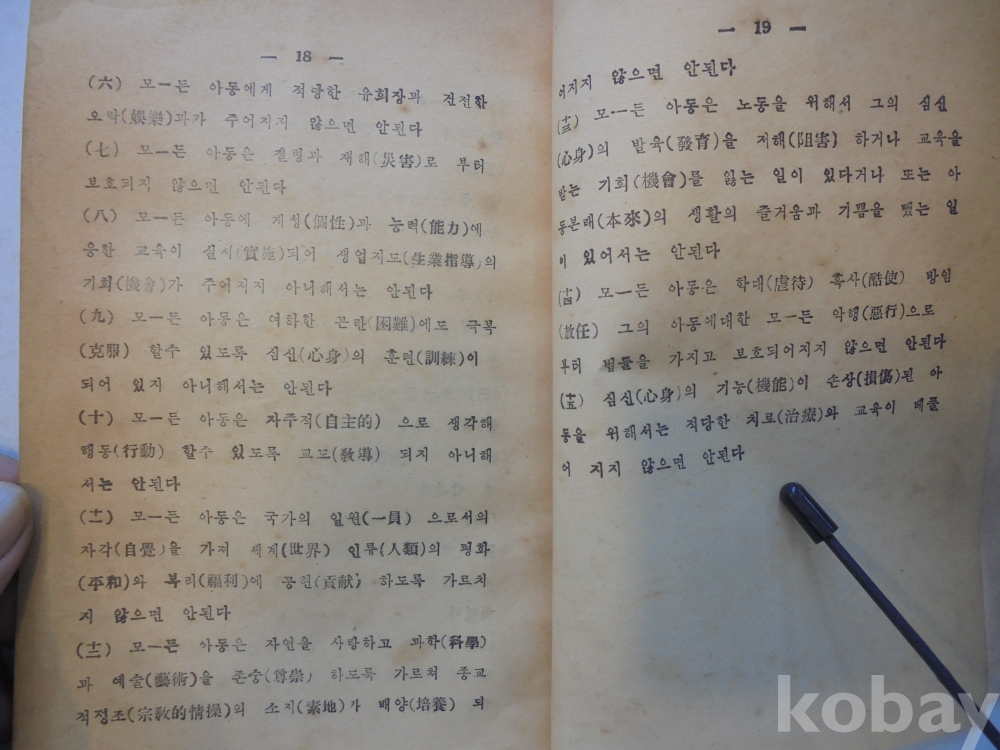 — 18 —
(六) 모―든 아동에게 적당한 유희장과 건전한
오락(娛樂)과가 주어지지 않으면 안된다
(七) 모―든 아동은 질병과 재해(災害)로 부터
보호되지 않으면 안된다
(八) 모―든 아동에 개성(個性)과 능력(能力)에
응한 교육이 실시(實施)되어 생업지도(生業指導)의
기회(機會)가 주어지지 아니해서는 안된다
(九) 모―든 아동은 여하한 곤란(困難)에도 극복
(克服) 할수 있도록 심신(心身)의 훈련(訓練)이
되어 있지 아니해서는 안된다
(十) 모―든 아동은 자주적(自主的) 으로 생각해
행동(行動) 할수 있도록 교도(敎導) 되지 아니해
서는 안된다
(十一) 모―든 아동은 국가의 일원(一員) 으로서의
자각(自覺)을 가저 세계(世界) 인류(人類)의 평화
(平和)와 복리(福利)에 공헌(貢献) 하도록 가르처
지 않으면 안된다
(十二) 모―든 아동은 자연을 사랑하고 과학(科學)
과 예술(藝術)을 존숭(尊崇) 하도록 가르처 종교
적정조(宗敎的情操)의 소지(素地)가 배양(培養) 되
— 19 —
어지지 않으면 안된다
(十三) 모―든 아동은 노동을 위해서 그의 심신
(心身)의 발육(發育)을 저해(阻害) 하거나 교육을
받는 기회(機會)를 잃는 일이 있다거나 또는 아
동본래(本來)의 생활의 즐거움과 기쁨을 뺐는 일
이 있어서는 안된다
(十四) 모―든 아동은 학대(虐待) 혹사(酷使) 방임
(放任) 그의 아동에대한 모―든 악행(惡行)으로
부터 법률을 가지고 보호되어지지 않으면 안된다
(十五) 심신(心身)의 기능(機能)이 손상(損傷)된 아
동을 위해서는 적당한 치로(治療)와 교육이 베풀
어 지지 않으면 안된다
kobay